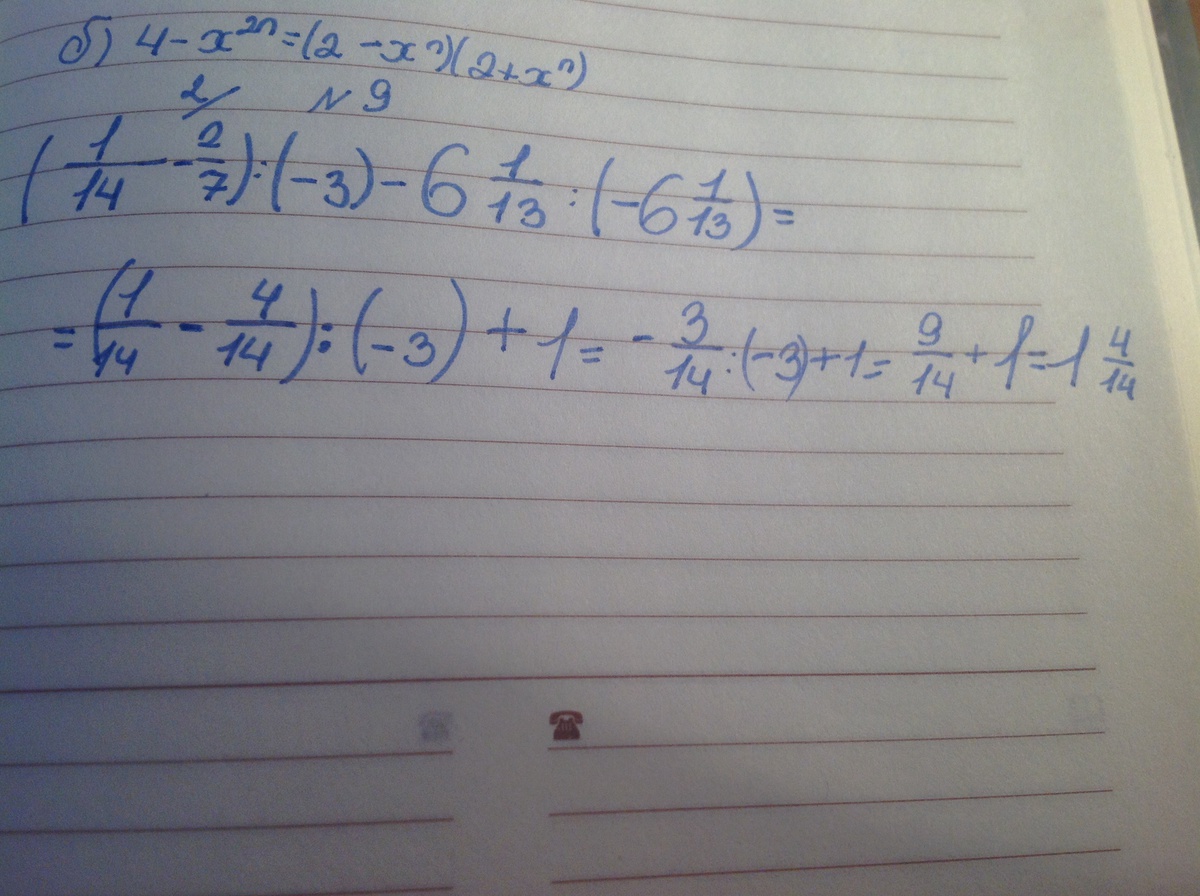 б) 4 - x²ⁿ = (2 - xⁿ)(2 + xⁿ)
2/ №9
(1/14 - 2/7) : (-3) - 6 1/13 : (-6 1/13) =
= (1/14 - 4/14) : (-3) + 1 = - 3/14 : (-3) + 1 = 9/14 + 1 = 1 4/14